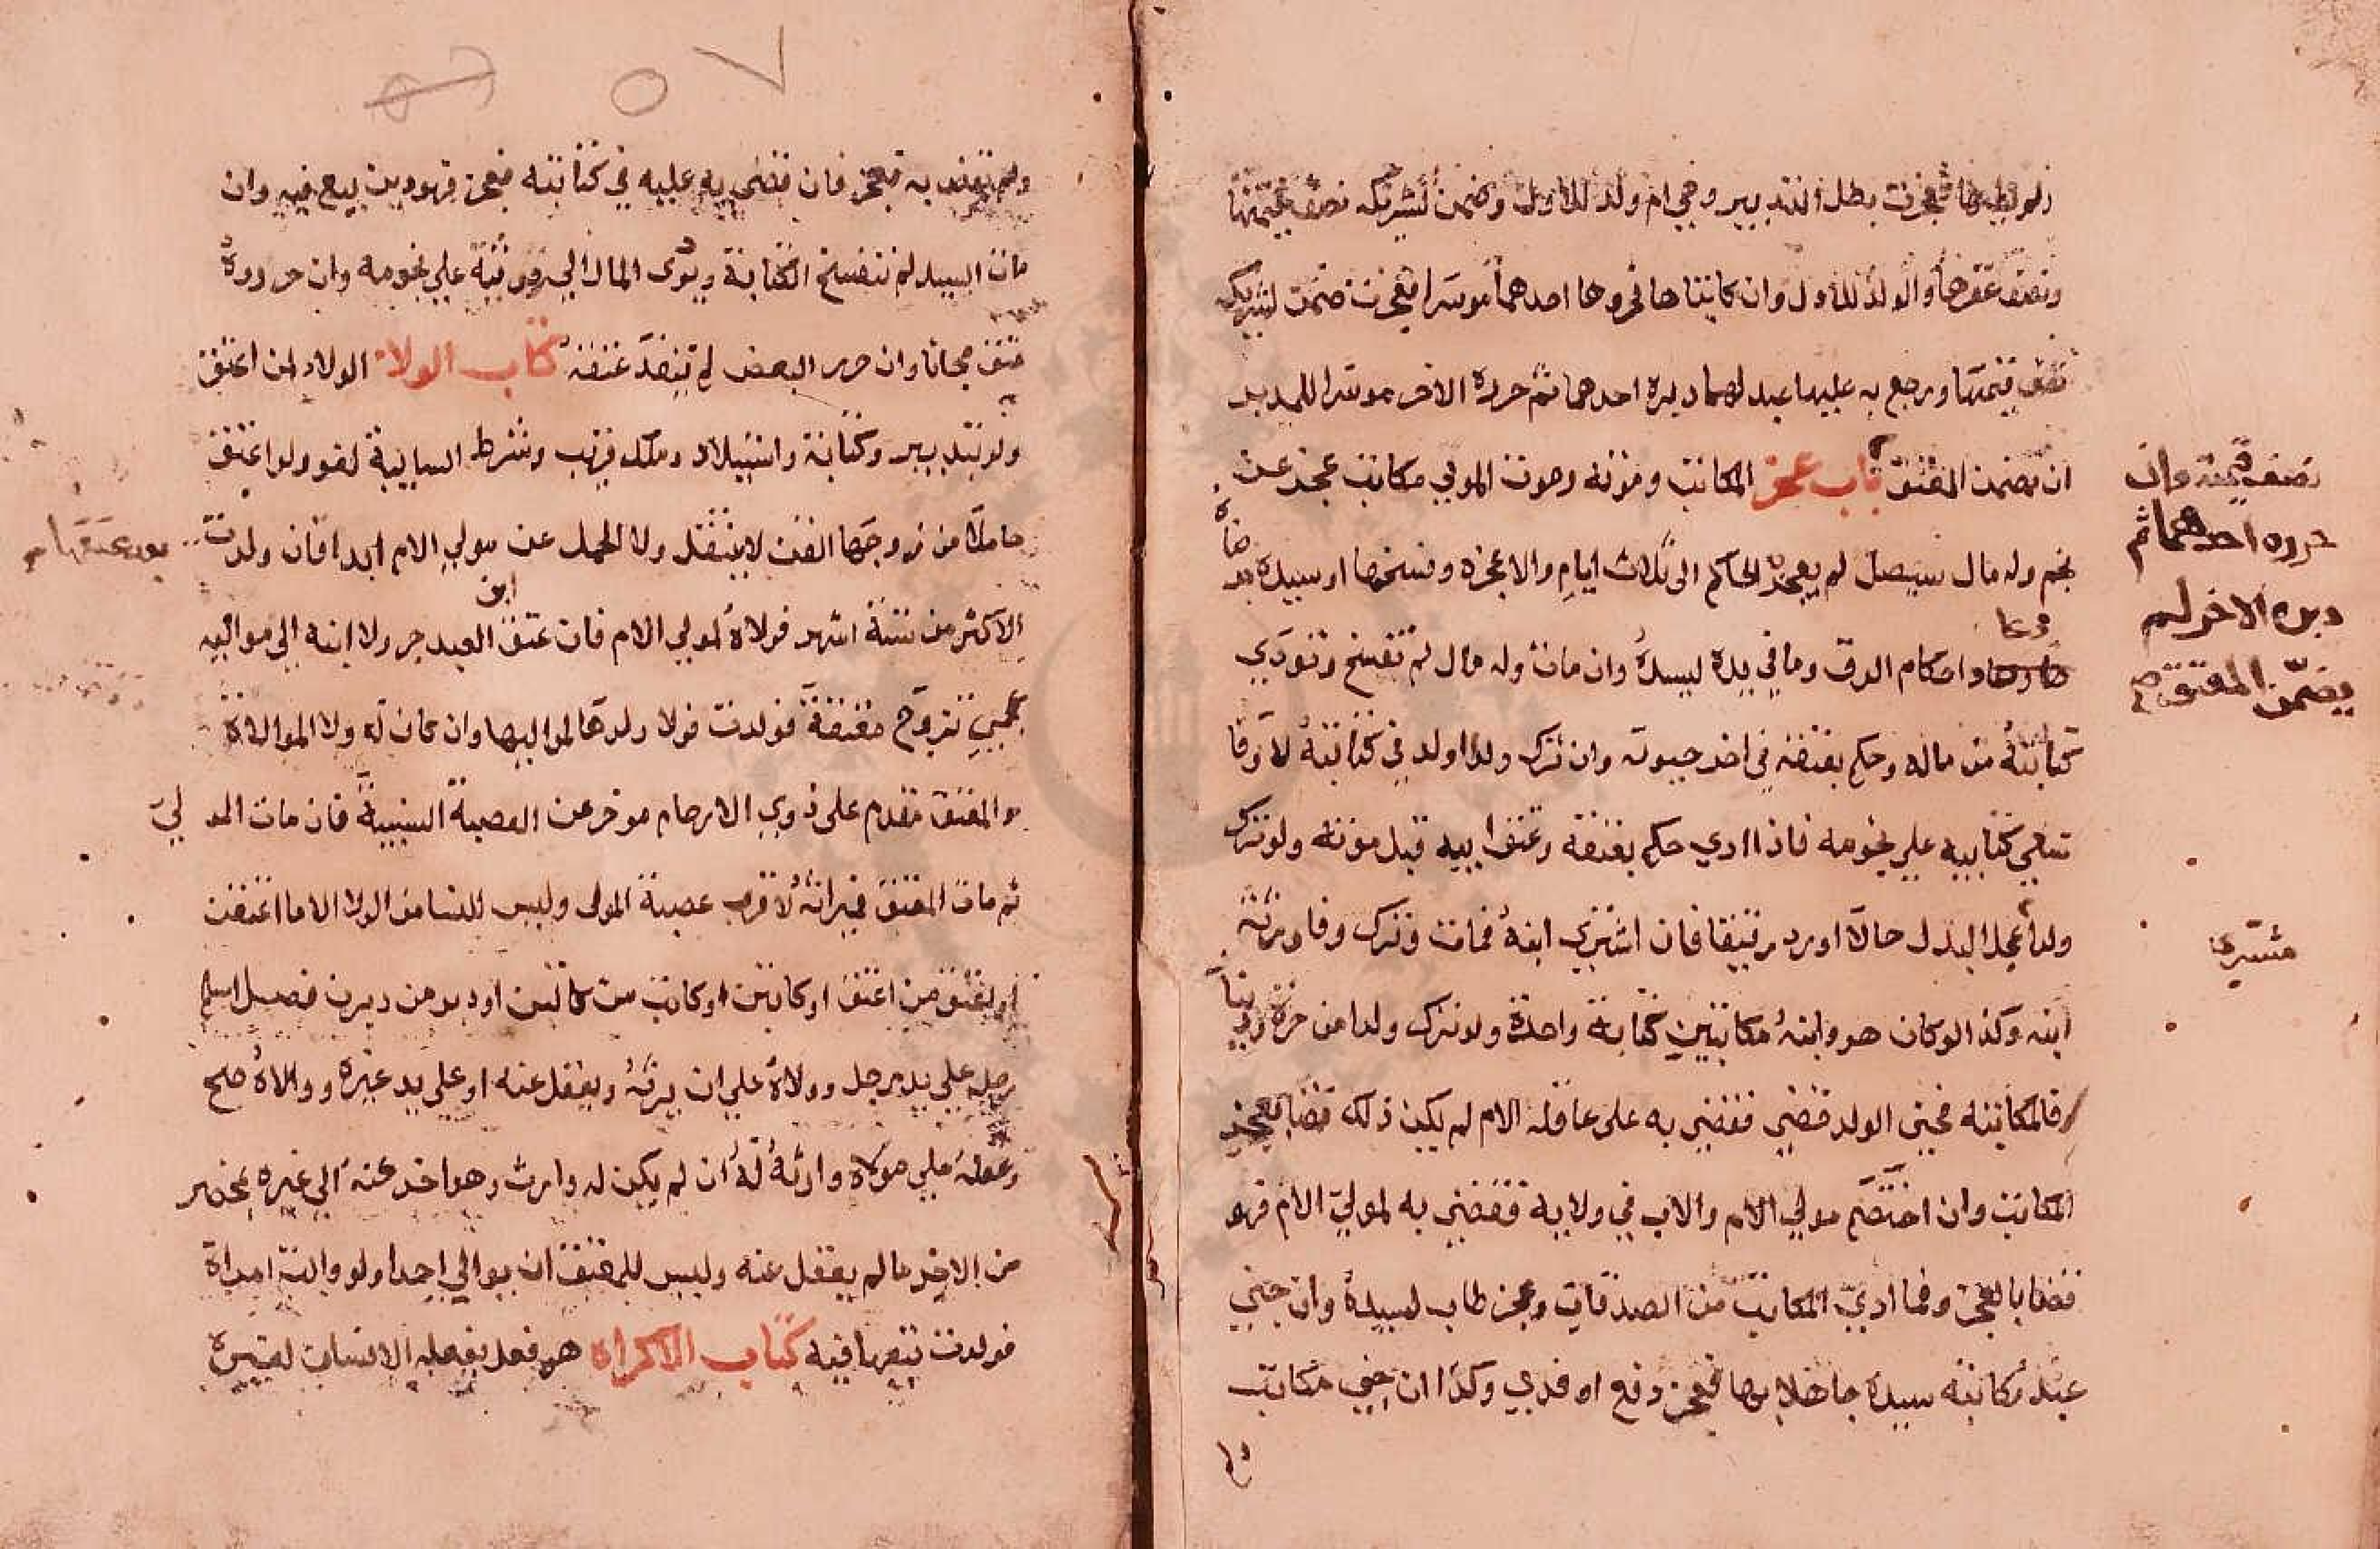 ولم يطأها فعجزت بطل التدبير وهي ام ولد للاول وضمن لشريكه نصف قيمتها
ونصف عقرها والولد للاول وان كاتباها فحررها احدهما موسرا فعجزت ضمن لشريكه
نصف قيمتها ورجع به عليها عبد لهما دبره احدهما ثم حرره الاخر موسرا للمدبر
ان يضمن المعتق باب عجز المكاتب وموته وموت المولي مكاتب عجز عن
نجم وله مال سيصل لم يعجزه الحاكم الى ثلاث ايام والا عجزه وفسخها او سيده برضاه
وعاد احكام الرق وما في يده لسيده وان مات وله مال لم تفسخ وتودي
كتابته من ماله وحكم بعتقه في اخر حيوته وان ترك ولدا ولد في كتابته لا وفا
سعي كتابيه علي نجومه فاذا ادي حكم بعتقه وعتق ابيه قبل موته ولو ترك
ولدا عجل البدل حالا او رد رقيقا فان اشتري ابنه فمات وترك وفا ورثه
ابنه وكذا لو كان هو وابنه مكاتبين كتابة واحدة ولو ترك ولدا من حرة ودينا
وفا لمكاتبته فجنى الولد فقضي فقضي به على عاقلة الام لم يكن ذلك قضا بعجز
المكاتب وان اختصم مولي الام والاب في ولايه فقضي به لمولي الام فهو
قضا بالعجز وما ادي المكاتب من الصدقات وعجز طاب لسيده وان جني
عبد وكاتبه سيده جاهلا بها فعجز دفع او فدي وكذا ان جني مكاتب
نصف قيمته وان
حرره احدهما ثم
دبره الاخر لم
يضمن المعتق صح
مشتري
ولم يقض به فعجز فان قضي به عليه في كتابته فعجز فهو دين بيع فيه وان
مات السيد لم تنفسخ الكتابة ويودى المال الي ورثته علي نجومه وان حرروه
عتق مجانا وان حرر البعض لم ينفذ عتقه كتاب الولاء الولاء لمن اعتق
ولو بتدبير وكتابة واستيلاد وملك قريب وشرط السايبة لغو ولو اعتق
حاملا من زوجها القن لا ينتقل ولا الحمل عن مولي الام ابدا فان ولدت
بعد عتقها
لاكثر من ستة اشهر فولاه لمولي الام فان عتق العبد جر ولا ابنه الي مواليه
عجمي تزوج معتقة فولدت فولا ولدها لمواليها وان كان له ولا الموالاة
والمعتق مقدم على ذوي الارحام موخر عن العصبة النسبية فان مات المولي
ثم مات المعتق فميراثه لاقرب عصبة المولى وليس للنسا من الولا الا ما اعتقن
او اعتق من اعتقن او كاتبن او كاتب من كاتبن او دبر من دبرن فصل اسلم
رجل علي يد رجل ووالاه علي ان يرثه ويعقل عنه او علي يد غيره ووالاه صح
وعقله علي مولاه وارثه له ان لم يكن له وارث وهو اخر عنه الي غيره بمحضر
من الاخر ما لم يعقل عنه وليس للمعتق ان يوالي احدا ولو والت امراة
فولدت تبعها فيه كتاب الاكراه هو فعل يفعله الانسان لغيره